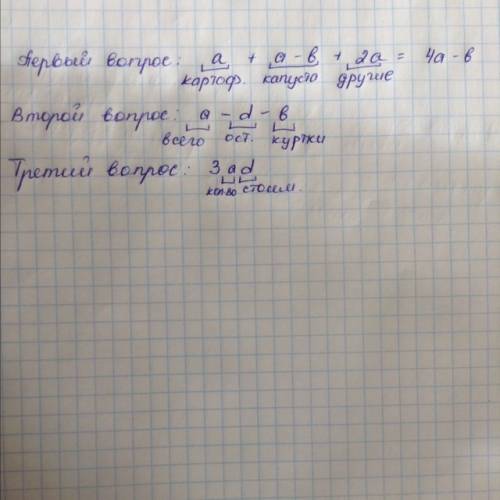 Первый вопрос: a + a - в + 2a = 4a - в
картоф. капуста другие
Второй вопрос: a - d - в
всего ост. куртки
Третий вопрос: 3 a d
колво стоим.